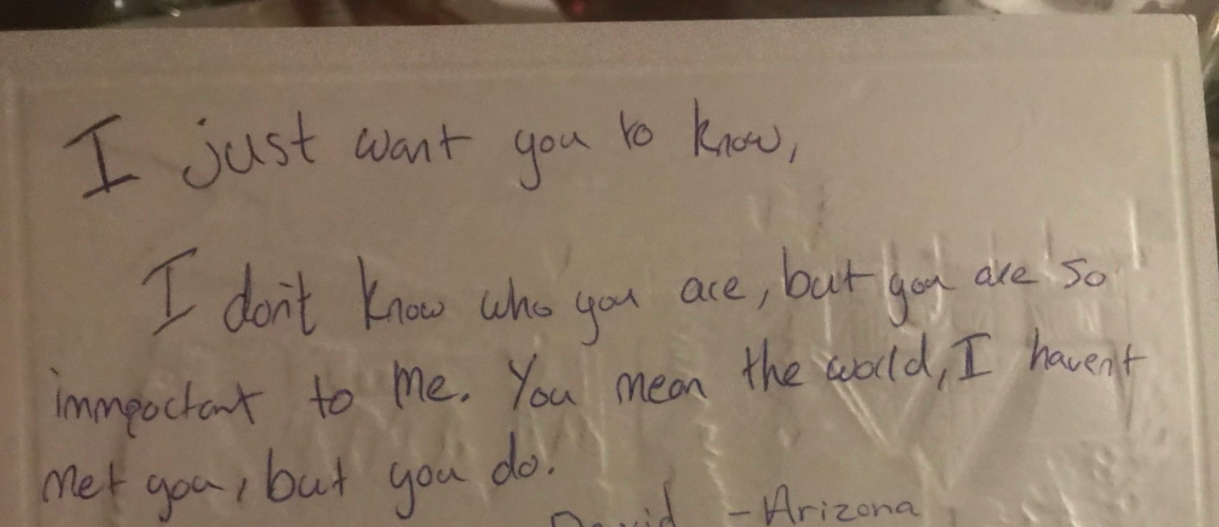 I just want you to know,
I don't know who you are, but you are so
immportant to me. You mean the world, I havent
met you, but you do.
David - Arizona